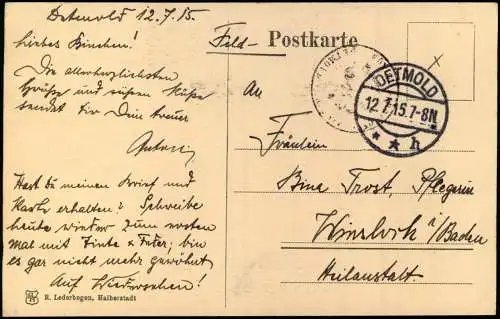 Detmold 12.7.15.
Liebes Binchen!
Die allerherzlichsten
Grüße und süßen Küße
sendet Dir Dein treuer
Anton
Hast du meinen Brief und
Karte erhalten? Schreibe
heute wieder zum ersten
mal mit Tinte & Feder; bin
es gar nicht mehr gewöhnt
Auf Wiedersehen!
R. Lederbogen, Halberstadt
Feld- Postkarte
An
DETMOLD
12.7.15.7-8N
* * h
Fräulein
Bina Trost, Pflegerin
Wiesloch i/Baden
Heilanstalt.